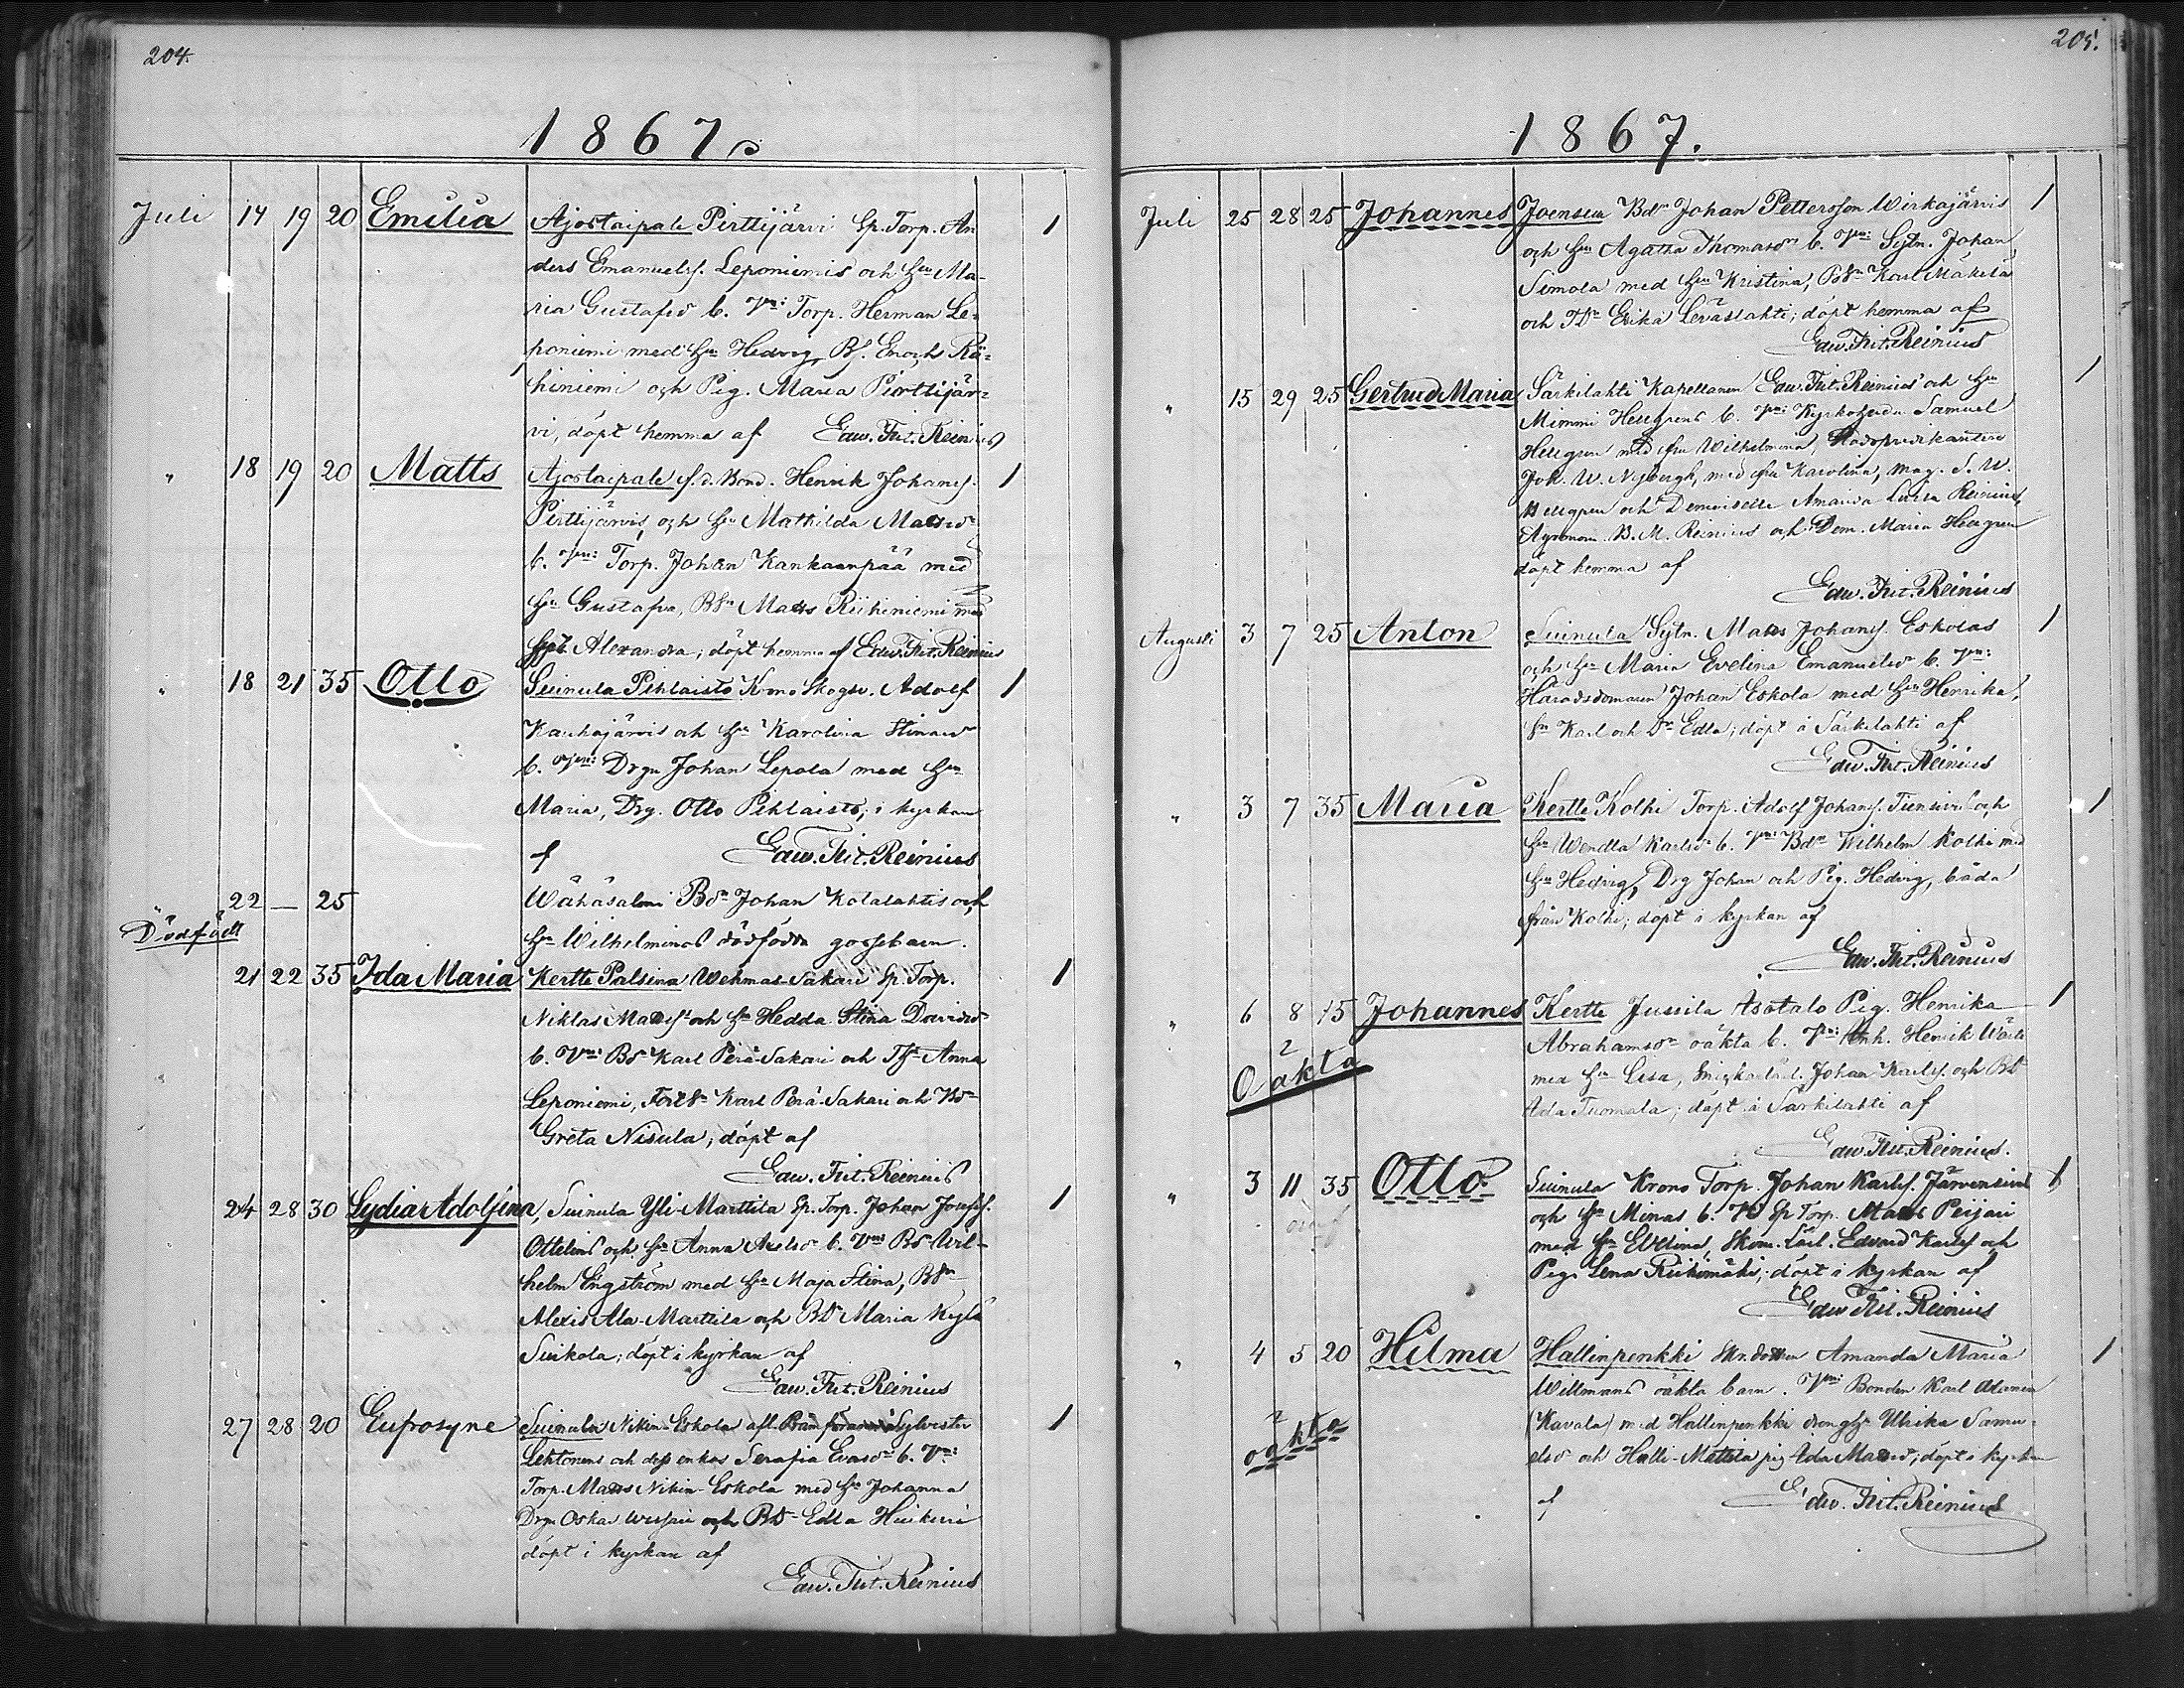 204.
1867.
Juli 14 19 20 Emilia Ajostaipale Pirttijärvi Sp. Torp. An 1
ders Emanuelss. Leponiemis och Hu Ma-
ria Gustafsd b. Vn: Torp. Herman Le-
poniemi med Hu Hedvig, Bs. Enoch Rä-
hiniemi och Pig. Maria Pirttijär-
vi, döpt hemma af Edw. Frit. Reinius
" 18 19 20 Matts Ajostaipale f.d. Bond. Henrik Johans. 1
Pirttijärvis och Hu Mathilda Matsdr
b. Vn: Torp. Johan Kankaanpää med
Hu Gustafva, Bsn Matts Riihiniemi med
Alexandra; döpt hemma af Edw. Frit. Reinius
" 18 21 35 Otto Suinula Pihlaisto Krono Skogv. Adolf 1
Kauhajärvis och Hu Karolina Stinas
b. Vn: Drgn Johan Lepola med Hu
Maria, Drg. Otto Pihlaisto; i kyrkan
af Edw. Frit. Reinius
" 22 — 25 Wähäsalmi Bdn Johan Kotalahtis och
Dödfödt Hu Wilhelminas dödfödda gossebarn.
21 22 35 Ida Maria Kertte Palsina Wehmas-Sakari Sp. Torp. 1
Niklas Matss och Hu Hedda Stina Davidsdr
b. Vn: Bsn Karl Perä-Sakari och Anna
Leponiemi, Karl Perä-Sakari och Bdr
Greta Nisula; döpt af
Edw. Frit. Reinius
24 28 30 Lydia Adolfina, Suinula Yli-Marttila Sp. Torp. Johan Josefss. 1
Ottelins och Hu Anna Axelsdr b. Vn: Bd Wil-
helm Engström med Hu Maja Stina, Bsn
Alexis Ala-Marttila och Bdr Maria Kylä
Suikola; döpt i kyrkan af
Edw. Frit. Reinius
27 28 20 Eufrosyne Suinula Nikin-Eskola afl. Sylvester 1
Lehtonens och dess enkas Serafia Evasdr b. Vn:
Torp. Matts Nikin-Eskola med Hu Johanna
Drgn Oskar och Bdr Edla
döpt i kyrkan af
Edw. Frit. Reinius
205.
1867.
Juli 25 28 25 Johannes Joensuu Bdn Johan Pettersson Wirkajärvis 1
och Hu Agatha Thomasdr b. Vn: Sytn. Johan
Simola med Hu Kristina, Bsn Karl Mäkelä
och Erika Leväslahti; döpt hemma af
Edw. Frit. Reinius
" 15 29 25 Gertrud Maria Särkilahti Kapellanen Edw. Frit. Reinius och Hu 1
Mimmi Hellgrens b. Vn: Kyrkoherden Samuel
Hellgren med fru Wilhelmina,
Joh. W. Nybergh, med fru Karolina, Mag. S. W.
Hellgren och Demoiselle Amanda Lovisa Reinius,
Agronom B. M. Reinius och Dem. Maria Hellgren
döpt hemma af
Edw. Frit. Reinius
Augusti 3 7 25 Anton Suinula Sytn. Matts Johans. Eskolas 1
och Hu Maria Evelina Emanuelsdr b. Vn:
Häradsdomaren Johan Eskola med Hu Henrika,
Sn Karl och Dr Edla; döpt å Särkilahti af
Edw. Frit. Reinius
" 3 7 35 Maria Kertte Kolhi Torp. Adolf Johans. och 1
Hu Wendla Karlsdr b. Vn: Bdn Wilhelm Kolhi med
Hu Hedvig, Drg Johan och Pig. Hedvig, båda
från Kolhi; döpt i kyrkan af
Edw. Frit. Reinius
" 6 8 15 Johannes Kertte Jussila Asotalo Pig. Henrika 1
Abrahamsdr oäkta b. Vn: Inh. Henrik
Oäkta med Hu Lisa, Johan Karlss. och Bdr
Ada Tuomala; döpt å Särkilahti af
Edw. Frit. Reinius.
" 3 11 35 Otto Suinula Krono Torp. Johan Karlss. Järvensivus 1
och Hu Minas b. Vn Sp Torp. Matts Peijari
med Hu Evelina, Skom. Lärl. Edvard Karlss och
Pig. Lena Riihimäki; döpt i kyrkan af
Edw Frit. Reinius
" 4 5 20 Hilma Hallinpenkki Amanda Maria 1
Willmans oäkta barn. Vn: Bonden Karl
oäkta (Kavala) med Hallinpenkki Ulrika Samu-
elsd och Halli-Mattila pig Ida Matsd; döpt i kyrkan
af Edw. Frit. Reinius